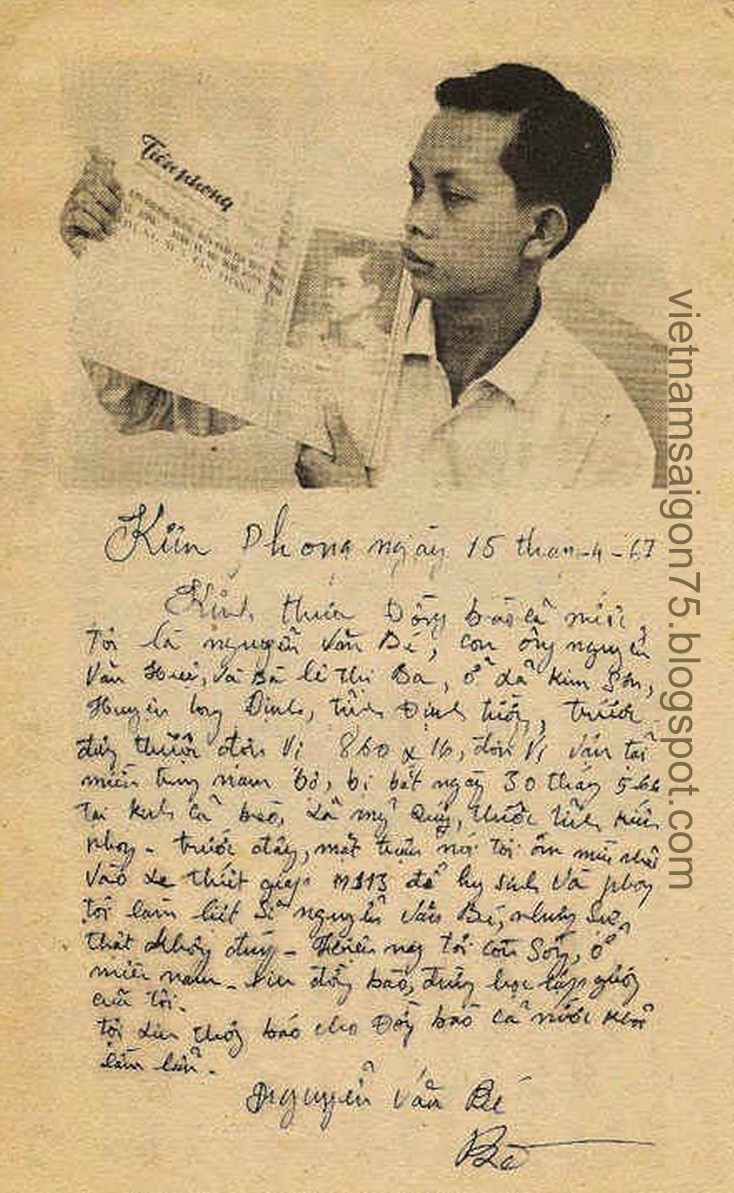 Tiền phong
Kiến Phong ngày 15 tháng 4-67
Kính thưa Đồng bào cả nước,
Tôi là nguyễn Văn Bé, con ông nguyễn
Văn Huê, và Bà lê thị Ba, ở xã Kim Sơn,
Huyện long Định, tỉnh Định tường, trước
đây thuộc đơn vị 860 x 16, đơn vị vận tải
miền trung nam bộ, bị bắt ngày 30 tháng 5-66
tại kinh cà bèo, xã mỹ quý, thuộc tỉnh kiến
phong - trước đây, mặt trận nói tôi ôm mìn nhãi
vào xe thiết giáp M113 để hy sinh và phong
tôi làm liệt sĩ nguyễn Văn Bé, nhưng sự
thật không đúng - Hiện nay tôi còn sống, ở
miền nam - xin đồng bào, đừng học tập gương
của tôi.
tôi xin thông báo cho Đồng bào cả nước khỏi
lầm lẫn.
Nguyễn Văn Bé
Bé
vietnamsaigon75.blogspot.com